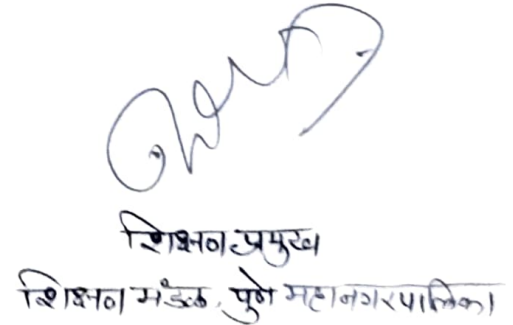 शिक्षण प्रमुख
शिक्षण मंडळ, पुणे महानगरपालिका